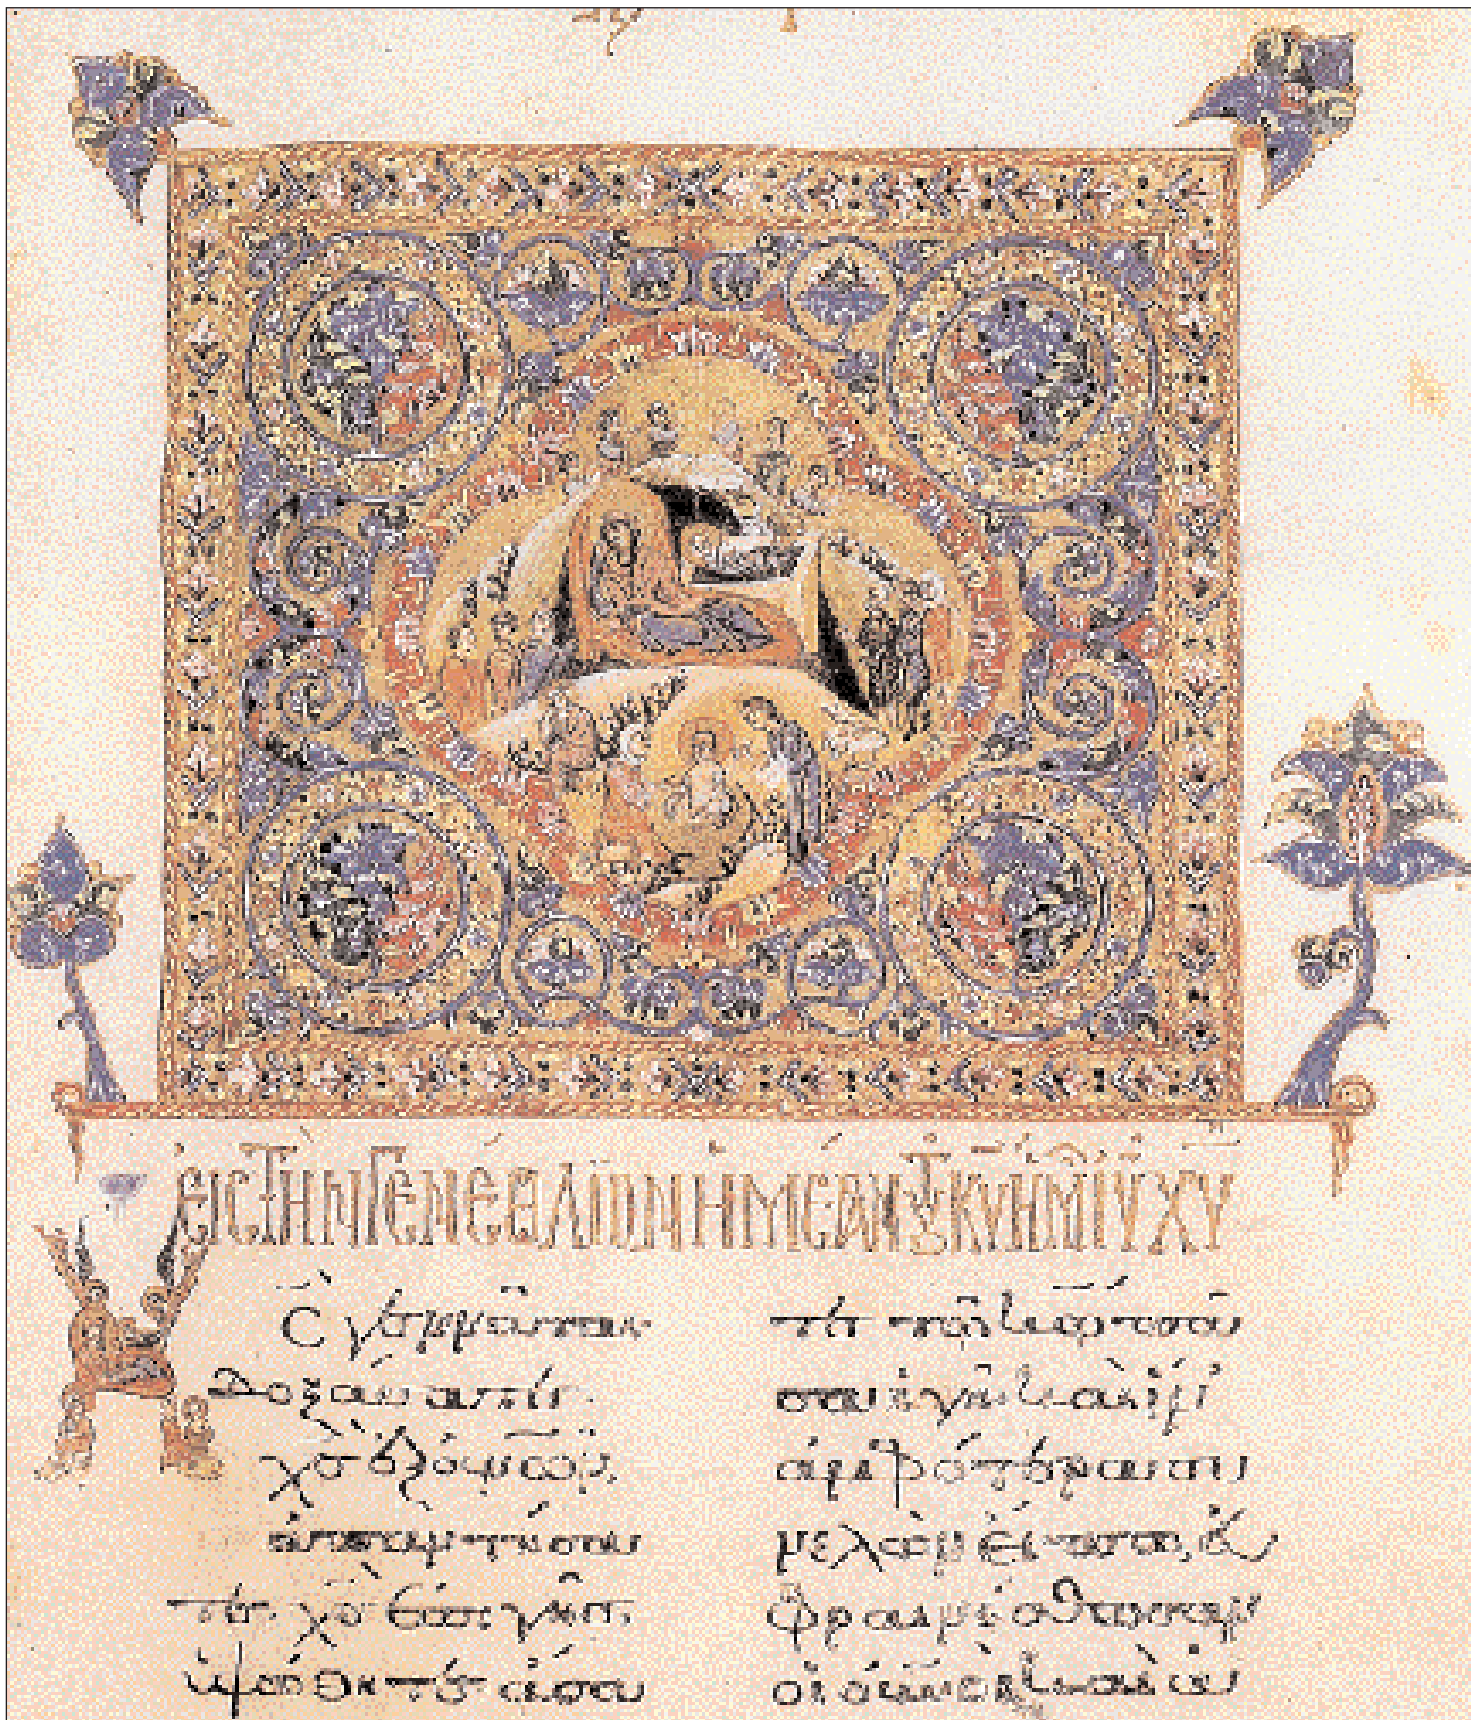 ΕΙC ΤΗΝ ΓΕΝΕΘΛΙΟΝ ΗΜΕΡΑΝ ΤΟΥ ΚΥ ΗΜΩΝ ΙΥ ΧΥ
Χσ γεννᾶται
δοξάσατε·
χσ ἐξ οὐνῶν·
ἀπαντήσατε
χσ ἐπὶ γῆς·
ὑψώθητε· ἄσα
τε τῶ κω πᾶ
σα ἡ γῆ· καὶ ἵν'
ἀμφότερα συ
νελὼν εἴπω, εὐ
φραινέσθωσαν
οἱ οὐνοὶ καὶ ἀ